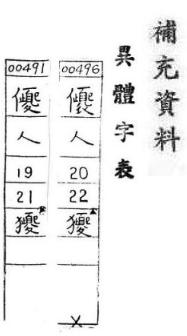 補充資料
異體字表
00496
人
20
22
獿
X
00491
人
19
21
獿